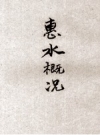 惠水概况